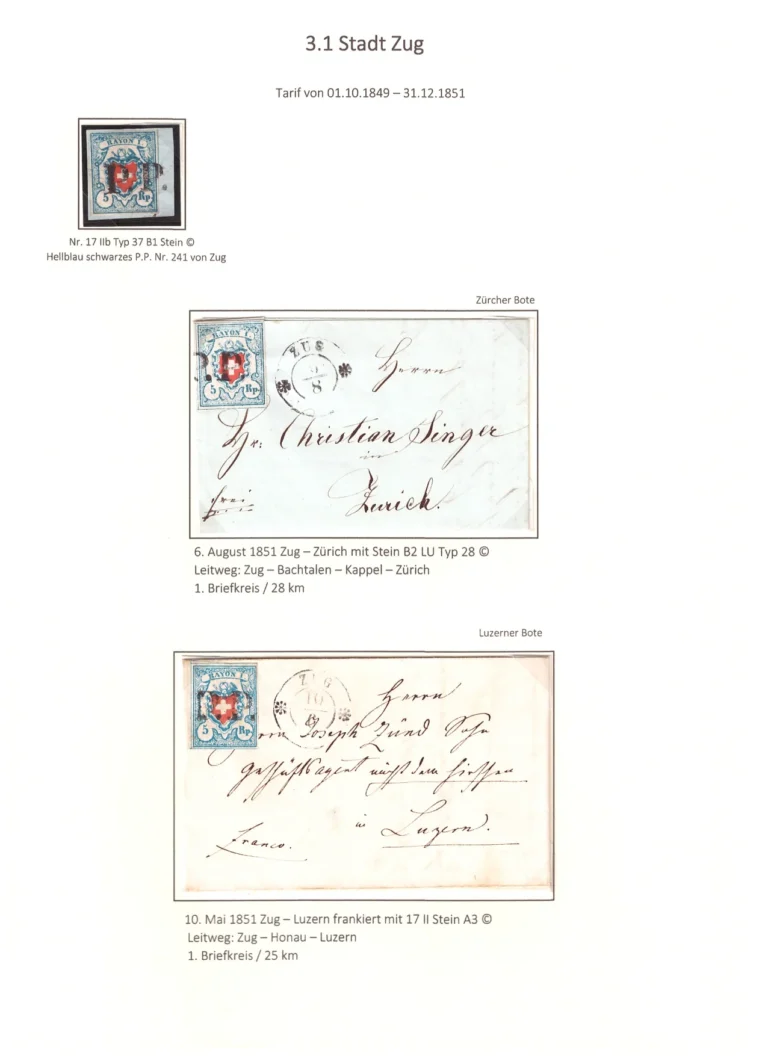 3.1 Stadt Zug
Tarif von 01.10.1849 – 31.12.1851
RAYON I
P.P.
5 Rp.
Nr. 17 IIb Typ 37 B1 Stein ©
Hellblau schwarzes P.P. Nr. 241 von Zug
Zürcher Bote
RAYON I
P.P.
5 Rp.
ZUG
8
Herrn
Hr. Christian Singer
in
Zurich.
frei
6. August 1851 Zug – Zürich mit Stein B2 LU Typ 28 ©
Leitweg: Zug – Bachtalen – Kappel – Zürich
1. Briefkreis / 28 km
Luzerner Bote
RAYON I
5 Rp.
ZUG
10
Herrn
Joseph Zünd Sohn
Geschäftsagent
in Luzern.
Franco.
10. Mai 1851 Zug – Luzern frankiert mit 17 II Stein A3 ©
Leitweg: Zug – Honau – Luzern
1. Briefkreis / 25 km